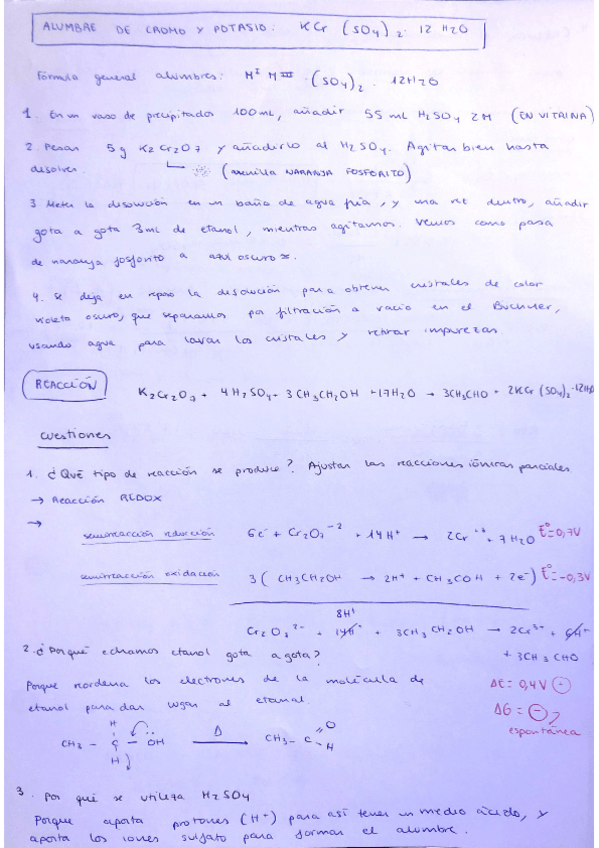 ALUMBRE DE CROMO Y POTASIO: KCr (SO4)2 · 12 H2O
Fórmula general alumbres: M^I M^III · (SO4)2 · 12H2O
1. En un vaso de precipitados 100mL, añadir 55 mL H2SO4 2M (EN VITRINA)
2. Pesar 5g K2Cr2O7 y añadirlo al H2SO4. Agitar bien hasta
disolver. (arenilla NARANJA FOSFORITO)
3 Meter la disolución en un baño de agua fría, y una vez dentro, añadir
gota a gota 3mL de etanol, mientras agitamos. Vemos como pasa
de naranja fosforito a azul oscuro
4. Se deja en reposo la disolución para obtener cristales de color
violeta oscuro, que separamos por filtración a vacío en el Büchner,
usando agua para lavar los cristales y retirar impurezas.
REACCIÓN K2Cr2O7 + 4H2SO4 + 3CH3CH2OH + 17H2O → 3CH3CHO + 2KCr(SO4)2·12H2O
Cuestiones
1. ¿Qué tipo de reacción se produce? Ajustar las reacciones iónicas parciales.
→ Reacción REDOX
→
semirreacción reducción 6e- + Cr2O7^-2 + 14H+ → 2Cr + 7H2O E°=0,7V
semirreacción oxidación 3( CH3CH2OH → 2H+ + CH3COH + 2e-) E°=-0,3V
8H+
Cr2O7^2- + 14H+ + 3CH3CH2OH → 2Cr^3+ + 6H+
+ 3CH3CHO
2. ¿Por qué echamos etanol gota a gota?
Porque reordena los electrones de la molécula de
etanol para dar lugar al etanal.
ΔE = 0,4V +
ΔG = -
espontánea
H
CH3 - C - OH Δ→ CH3 - C
O
H
H
3. Por qué se utiliza H2SO4
Porque aporta protones (H+) para así tener un medio ácido, y
aporta los iones sulfato para formar el alumbre.